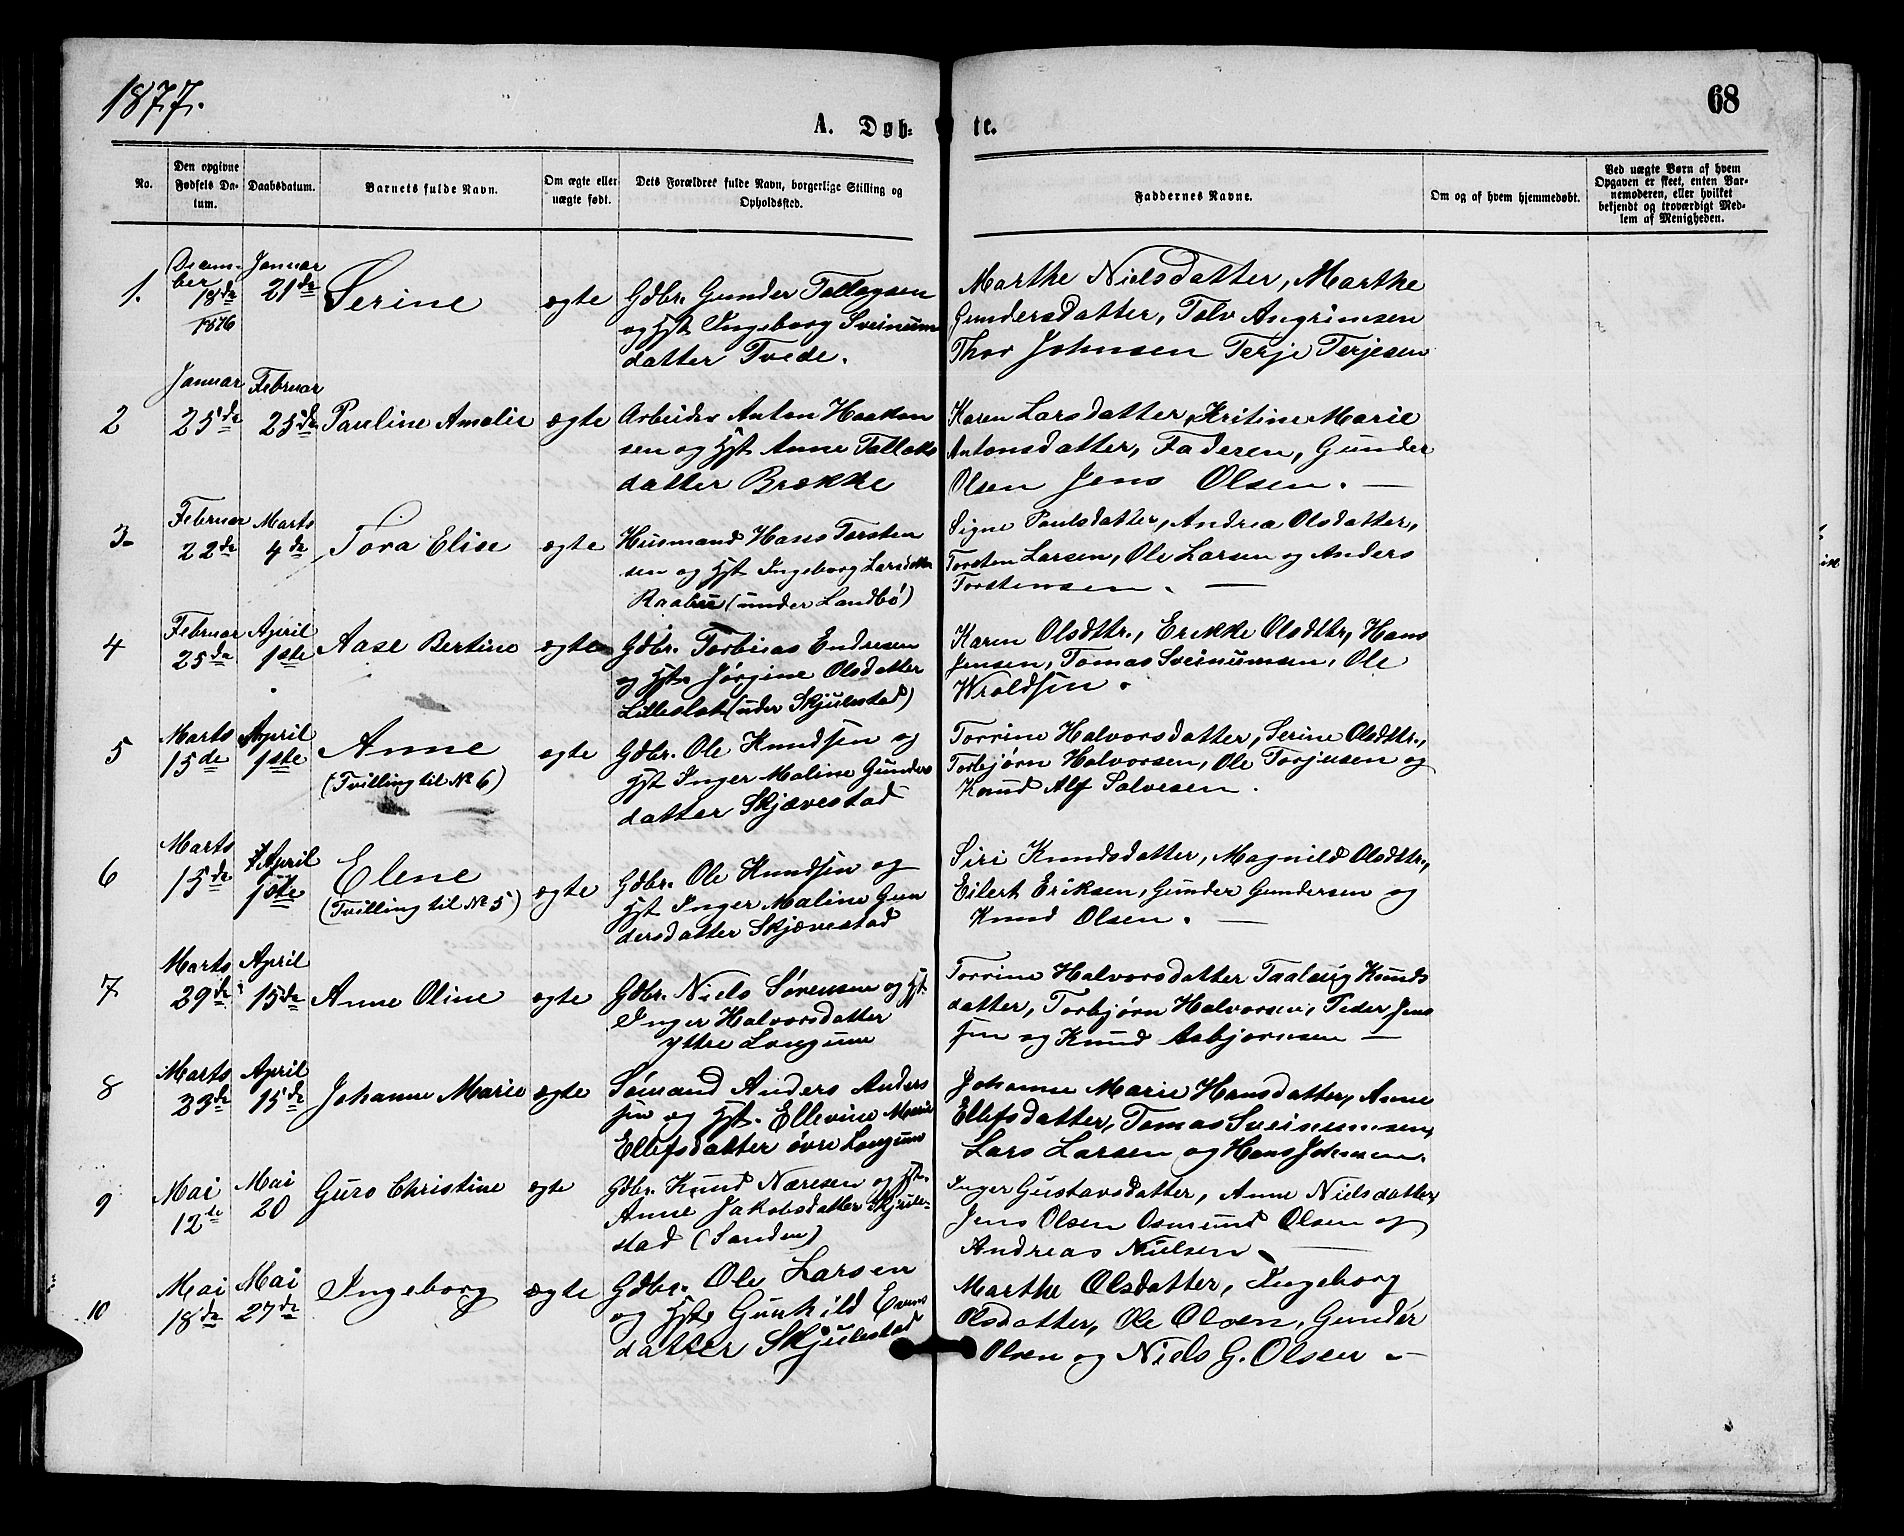 1877.
68
A. Døb- te.
No.
Den opgivne Fødsels Da- tum.
Daabsdatum.
Barnets fulde Navn.
Om ægte eller uægte født.
Dets Forældres fulde Navn, borgerlige Stilling og Opholdssted.
Faddernes Navne.
Om og af hvem hjemmedøbt.
Ved uægte Børn af hvem Opgaven er skeet, enten Bar- nemoderen, eller hvilket bekjendt og troværdigt Med- lem af Menigheden.
1. Decem- ber 18de 1876 Januar 21de Serine ægte
Gdbr. Gunder Tellagsen
og Hst Ingeborg Sveinum
datter Tvede.
Marthe Nielsdatter, Marthe
Gundersdatter, Talv Angrimsen
Thor Johnsen Terje Terjesen
2 Januar 25de Februar 25de Pauline Amalie ægte
Arbeider Anton Haakon
sen og Hst Anne Tallaks
datter Brække
Karen Larsdatter, Kritine Marie
Antonsdatter, Faderen, Gunder
Olsen Jens Olsen. —
3. Februar 22de Marts 4de Tora Elise ægte
Husmand Hans Torsten
sen og Hst Ingeborg Larsdatter
Raabu (under Landbø)
Signe Paulsdatter, Andrea Olsdatter,
Torsten Larsen, Ole Larsen og Anders
Torstensen. —
4 Februar 25de April 1ste Aase Bertine ægte
Gdbr. Torbias Endresen
og Hst. Jørgine Olsdatter
Lilleslot (uder Skjulestad)
Karen Olsdttr., Erekke Olsdttr, Hans
Jensen, Tomas Sveinumsen, Ole
Wroldsen.
5 Marts 15de April 1ste Anne (Tvilling til No 6) ægte
Gdbr. Ole Knudsen og
Hst Inger Maline Gunders
datter Skjævestad
Torrine Halvorsdatter, Serine Olsdttr.,
Torbjørn Halvorsen, Ole Torjusen og
Knud Alf Salvesen.
6 Marts 15de April 1ste Elene (Tvilling til No 5) ægte
Gdbr. Ole Knudsen og
Hst Inger Maline Gun
dersdatter Skjævestad
Siri Knudsdatter, Magnild Olsdttr.,
Eilert Eriksen, Gunder Gundersen og
Knud Olsen. —
7 Marts 29de April 15de Anne Oline ægte
Gdbr. Niels Sørensen og Hst.
Inger Halvorsdatter
yttre Longum
Torrine Halvorsdatter Taaleug Knuds
datter, Torbjørn Halvorsen, Peder Jens
sen og Knud Asbjørnsen —
8 Marts 23de April 15de Johanne Marie ægte
Sømand Anders Anders
sen og Hst. Ellevine Marie
Ellefsdatter øvre Longum
Johanne Marie Hansdatter, Anne
Ellefsdatter, Tomas Sveinumsen,
Lars Larsen og Hans Johnsen.
9 Mai 12te Mai 20 Guro Christine ægte
Gdbr. Knud Næresen og Hst.
Anne Jakobsdatter Skjule-
stad (Sanden)
Inger Gustavsdatter, Anne Nielsdatter,
Jens Olsen Osmund Olsen og
Andreas Nielsen. —
10 Mai 18de Mai 27de Ingeborg ægte
Gdbr. Ole Larsen
og Hst. Gunhild Evens
datter Skjulestad
Marthe Olsdatter, Ingeborg
Olsdatter, Ole Olsen, Gunder
Olsen og Niels G. Olsen —